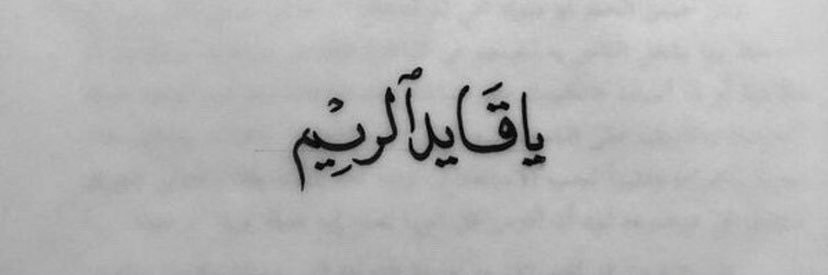 يا قَايد ٱلريْم